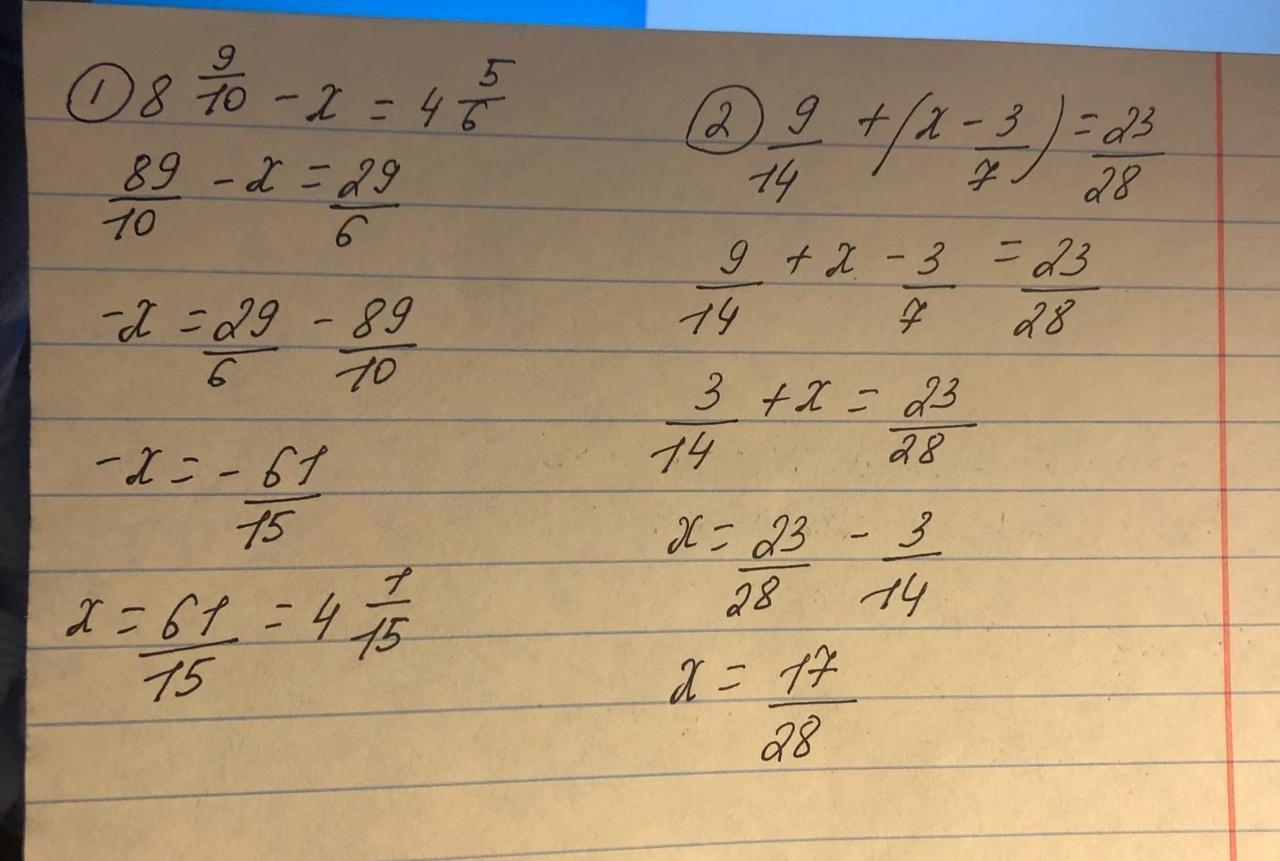 ① 8 9/10 - x = 4 5/6
89/10 - x = 29/6
-x = 29/6 - 89/10
-x = - 61/15
x = 61/15 = 4 1/15
② 9/14 + (x - 3/7) = 23/28
9/14 + x - 3/7 = 23/28
3/14 + x = 23/28
x = 23/28 - 3/14
x = 17/28